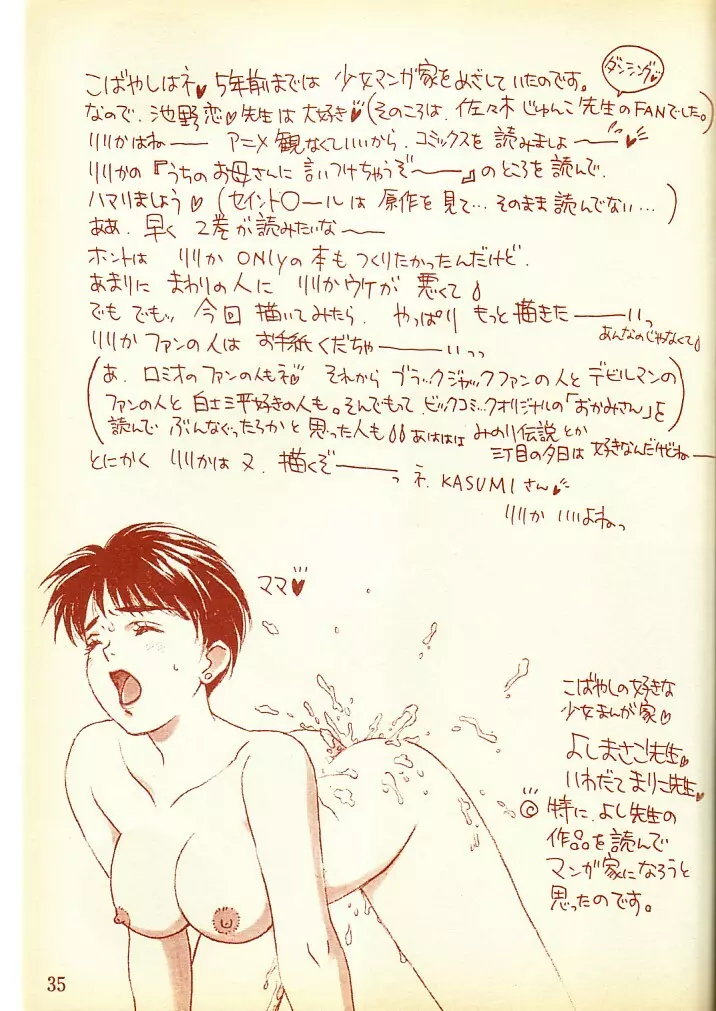 こばやしはネ♥ 5年前までは 少女マンガ家をめざしていたのです。
ダンシング♥
なので、池野恋♥先生は大好き♥(そのころは、佐々木じゅんこ先生のFANでした。)
リリかはねー アニメ観なくていいから、コミックスを 読みましょー♥
リリかの『うちのお母さんに言いつけちゃうぞー』のところを読んで、
ハマりましょう♥(セイント〇ールは 原作を見て…そのまま読んでない…)
ああ、早く 2巻が読みたいなー
ホントは リリか ONLyの本もつくりたかったんだけど、
あまりに まわりの人に リリかウケが 悪くて
でもでもッ 今回描いてみたら、やっぱり もっと描きたーいっ
あんなのじゃなくて
リリか ファンの人は お手紙くだちゃーいっっ
(あ、ロミオのファンの人もネ♥ それから ブラックジャックファンの人と デビルマンの
ファンの人と 白土三平好きの人も。そんでもって ビックコミックオリジナルの「おかみさん」を
読んで ぶんなぐったろかと思った人も あははは みのり伝説とか
三丁目の夕日は 好きなんだけどねー
とにかく リリかは又、描くぞーっ ネ、KASUMIさん♥
リリか いいよねっ
ママ♥
こばやしの好きな
少女まんが家♥
よしまさこ先生♥
いわだてまりこ先生♥
◎特に、よし先生の
作品を読んで
マンガ家になろうと
思ったのです。
35